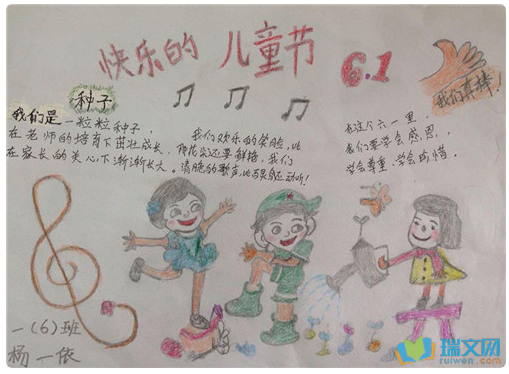 快乐的 儿童节
6.1
我们真棒!
种子
我们是一粒粒种子,
在老师的培育下茁壮成长,
在家长的关心下渐渐长大。
我们欢乐的笑脸,比
那花朵还要鲜艳,我们
清脆的歌声,比百灵鸟还动听!
在这个六一里,
我们要学会感恩,
学会尊重,学会珍惜。
一(6)班
杨一依
瑞文网